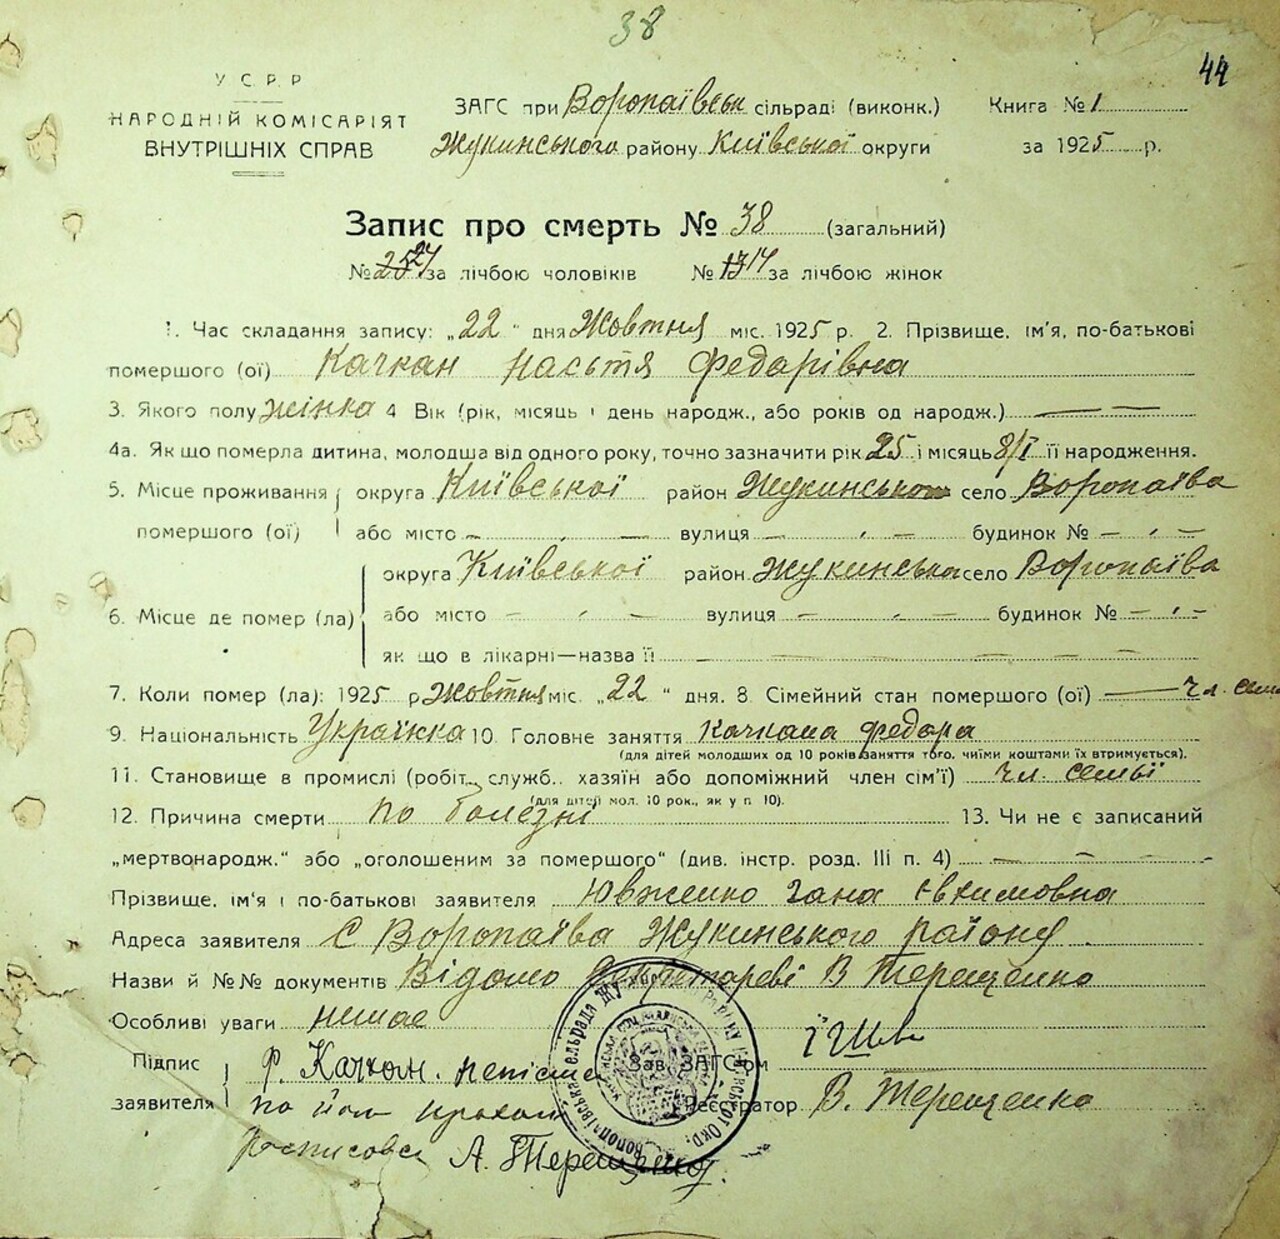 38
44
У С Р Р
НАРОДНІЙ КОМІСАРІЯТ
ВНУТРІШНІХ СПРАВ
ЗАГС при Воропаївськ сільраді (виконк.)
Жукинського району Київської округи
Книга № 1
за 1925 р.
Запис про смерть № 38 (загальний)
№ 25 24 за лічбою чоловіків № 13 14 за лічбою жінок
1. Час складання запису: „22“ дня Жовтня міс. 1925 р. 2. Прізвище, ім'я, по-батькові
помершого (ої) Качкан Насьтя Федарівна
3. Якого полу жінка 4 Вік (рік, місяць і день народж., або років од народж.) — —
4а. Як що померла дитина, молодша від одного року, точно зазначити рік 25 і місяць 8/I її народження.
5. Місце проживання помершого (ої) округа Київської район Жукинсько село Воропаїва
або місто — вулиця — будинок № —
6. Місце де помер (ла) округа Київської район Жукинська село Воропаїва
або місто — вулиця — будинок № —
як що в лікарні—назва її
7. Коли помер (ла): 1925 р Жовтня міс. „22“ дня. 8. Сімейний стан помершого (ої) — чл. сем
9. Національність Українка 10. Головне заняття Качкана Федара
(для дітей молодших од 10 років заняття того, чиїми коштами їх втримується).
11. Становище в промислі (робіт., служб., хазяїн або допоміжний член сім'ї) чл. семьї
(для дітей мол. 10 рок., як у п 10).
12. Причина смерти по болезні 13. Чи не є записаний
„мертвонародж.“ або „оголошеним за помершого“ (див. інстр. розд. III п. 4) — — —
Прізвище, ім'я і по-батькові заявителя Ювженко Гана Євхимовна
Адреса заявителя С Воропаїва Жукинського району
Назви й №№ документів Відомо Секретареві В Терещенко
Особливі уваги немає
Підпис заявителя Ф. Качкан.
Зав. ЗАГС'ом
Реєстратор В. Терещенко
росписовся А. Терещенко.